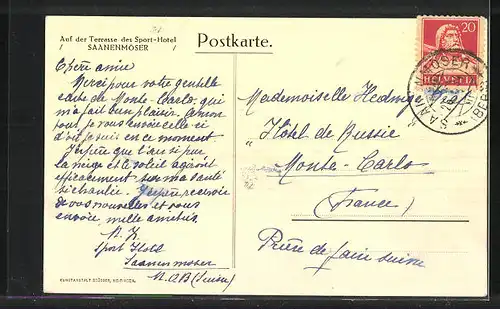 Auf der Terrasse des Sport-Hotel
/ SAANENMÖSER /
Postkarte.
20
HELVETIA
Chère amie
Merci pour votre gentille
carte de Monte-Carlo, qui
m'a fait bien plaisir. A mon
tour, je vous envoie celle-ci
d'où je suis en ce moment.
J'espère que l'air si pur
la neige et le soleil agiront
efficacement sur ma santé
J'espère recevoir
de vos nouvelles et vous
envoie mille amitiés.
Sport Hotel
Saanenmoser
M.O.B (Suisse)
Mademoiselle Hedwige
"Hôtel de Russie
Monte-Carlo
(France)
Prière de faire suivre